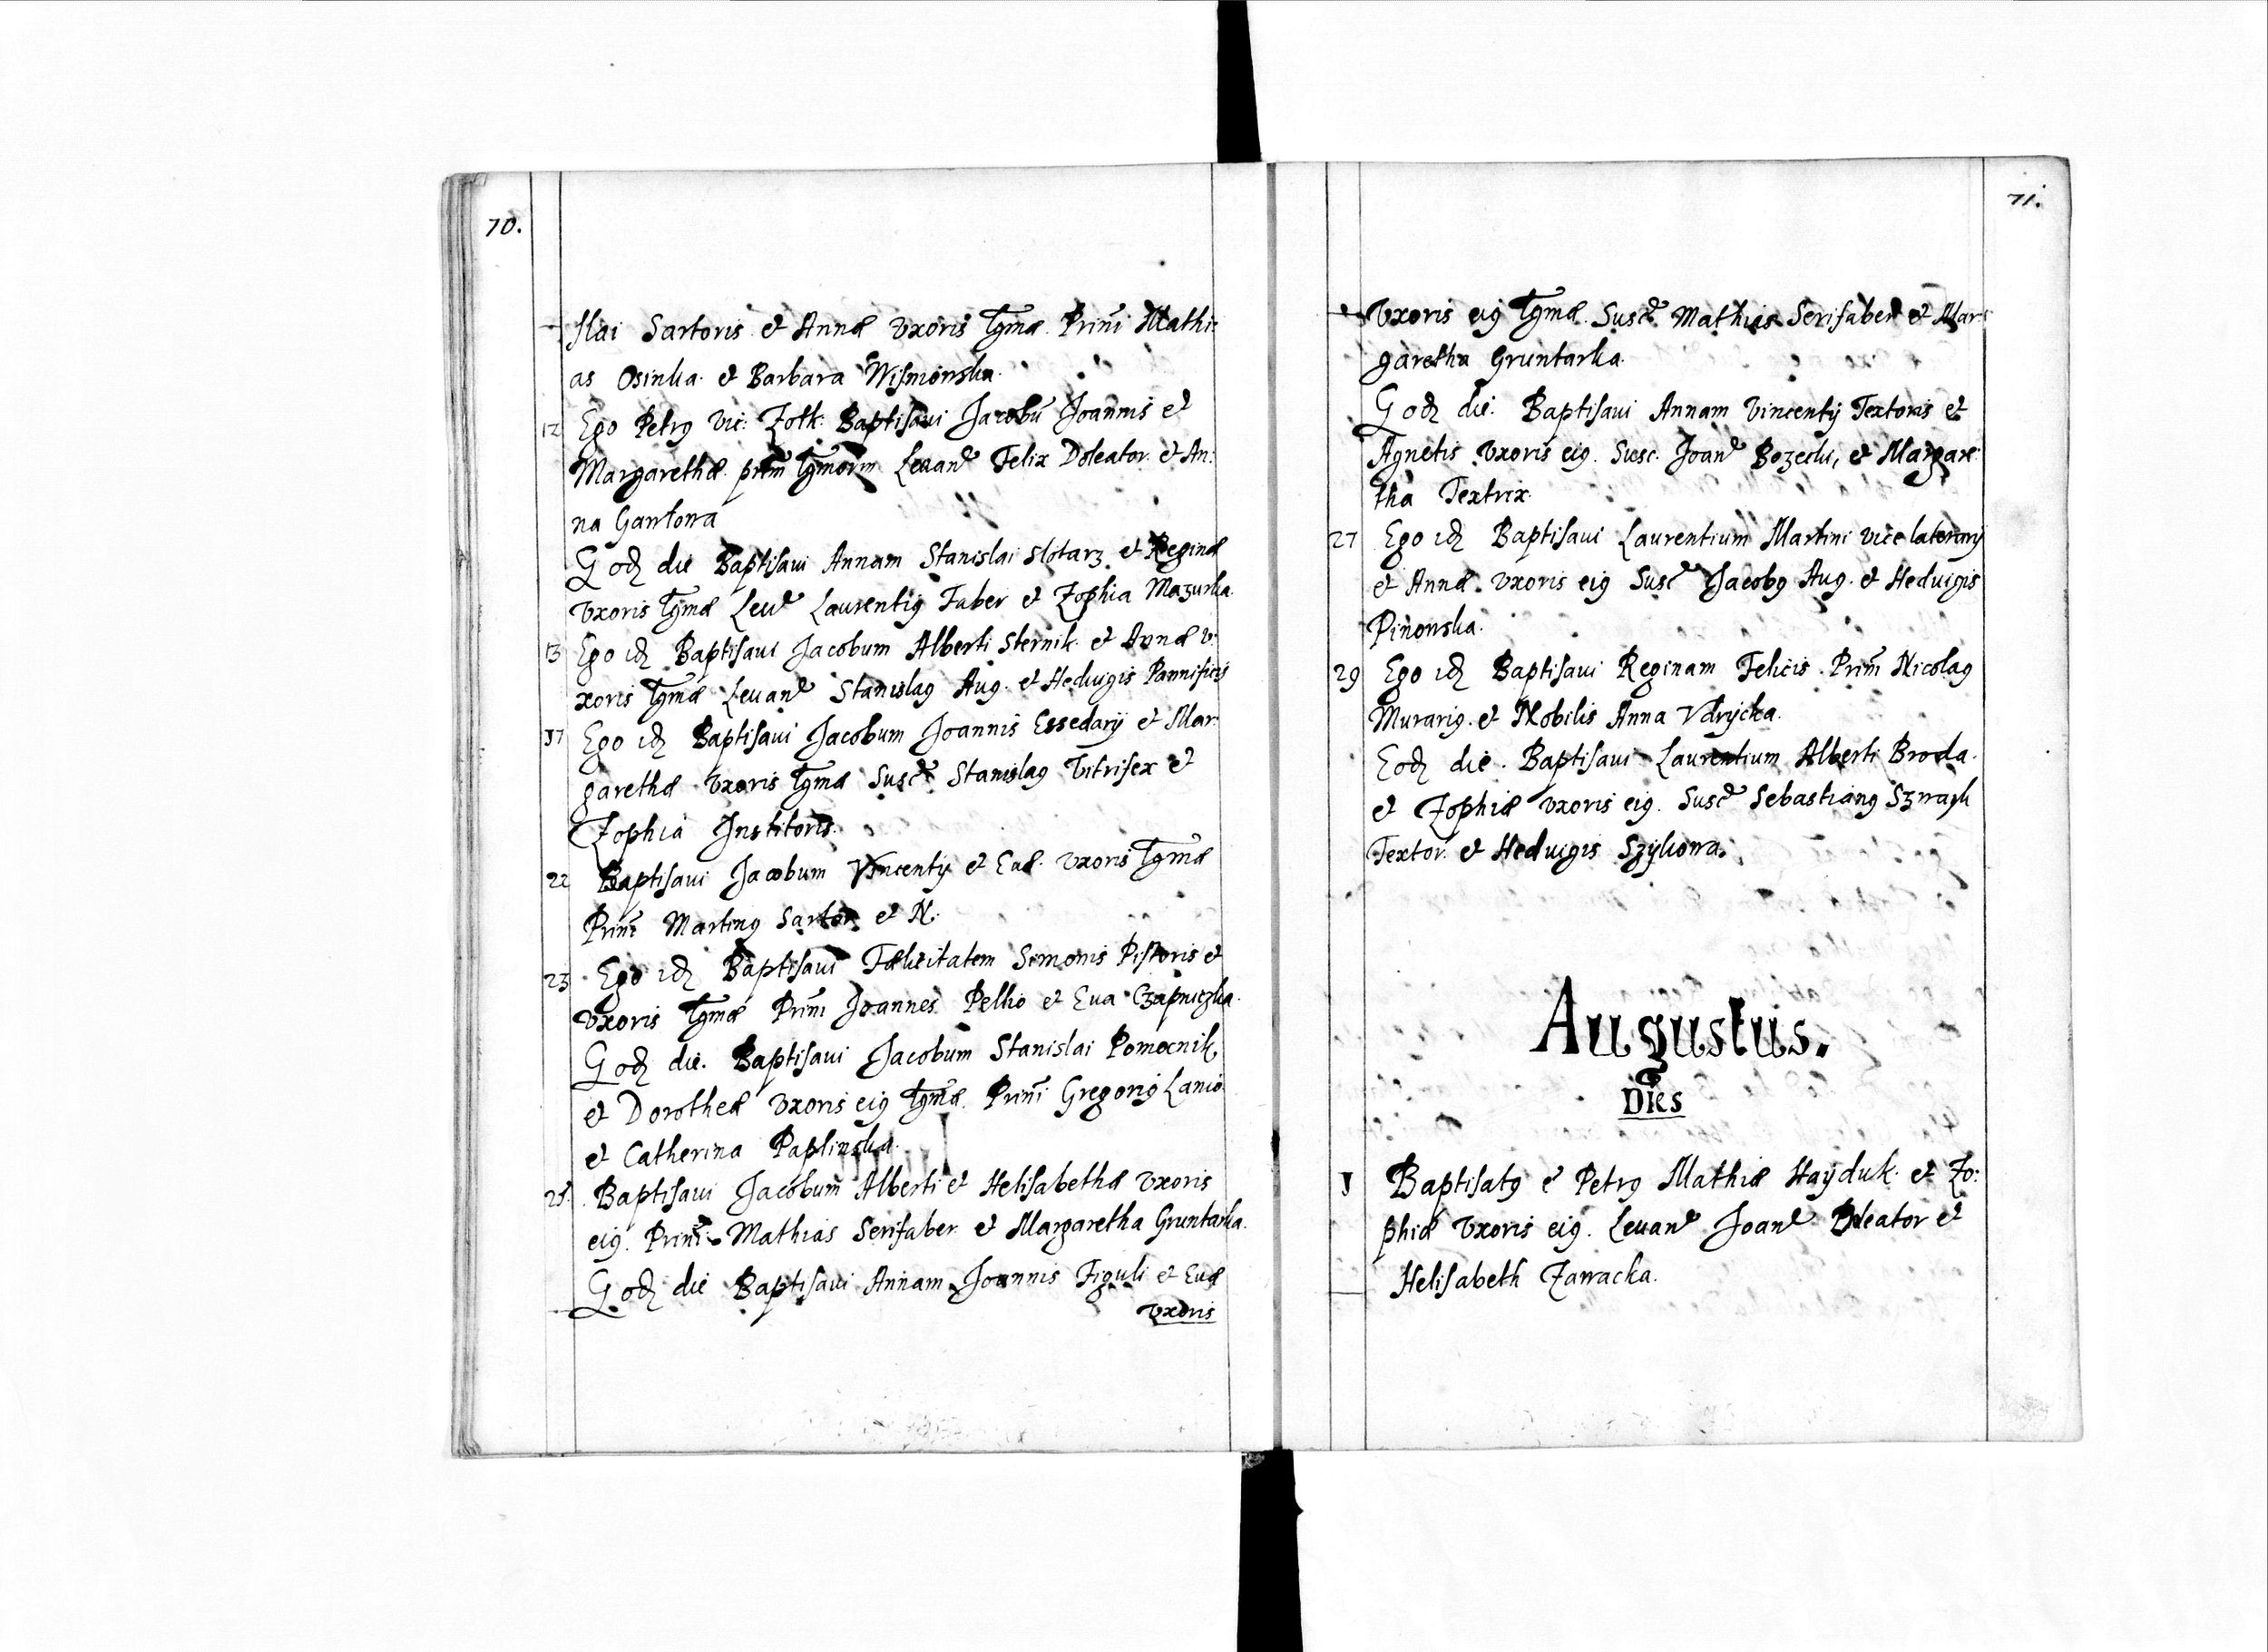 70.
slai Sartoris et Annæ Vxoris Lgmæ. Prini Mathi:
as Osinka. et Barbara Wismionska.
12 Ego Petrꝯ Vic: Zolk: Baptisaui Jacobū Joannis et
Margarethæ. prm Lgmorm Leuan͛ Felix Doleator. et An:
na Gawłowa
Eod̄ die Baptisaui Annam Stanislai slotarz et Reginæ
Vxoris Lgmæ Leu͛ Laurentiꝯ Faber et Zophia Mazurka.
13 Ego id̄ Baptisaui Jacobum Alberti Sternik. et Annæ v:
xoris Lgmæ Leuan͛ Stanislaꝯ Aug. et Heduigis Pannificis
17 Ego id̄ Baptisaui Jacobum Joannis Essedarij et Mar:
garethæ Vxoris Lgmæ Susc͛ Stanislaꝯ Vitrifex et
Zophia Institoris.
22 Baptisaui Jacobum Vincentij et Euæ. Vxoris Lgmæ
Prini Martinꝯ Sartor et N.
23 Ego id̄ Baptisaui Fælicitatem Simonis Pistoris et
Vxoris Lgmæ Prini Joannes Pellio et Eua Czapniczka.
Eod̄ die. Baptisaui Jacobum Stanislai Pomocnik,
et Dorotheæ Vxoris eiꝯ Lgmæ. Prini Gregoriꝯ Lanio
et Catherina Paplinska.
25. Baptisaui Jacobum Alberti et Helisabethæ Vxoris
eiꝯ. Prini Mathias Serifaber et Margaretha Gruntarka.
Eod̄ die Baptisaui Annam Joannis Figuli et Euæ
Vxoris
71.
Vxoris eiꝯ Lgmæ. Susc͛. Mathias Serifaber et Mar:
garetha Gruntarka.
Eod̄ die. Baptisaui Annam Vincentij Textoris et
Agnetis Vxoris eiꝯ. Susc. Joan͛ Bozecki, et Margare:
tha Textrix.
27 Ego id̄ Baptisaui Laurentium Martini vice laterarij
et Annæ. Vxoris eiꝯ Susc͛ Jacobꝯ Aug. et Heduigis
Pinonska.
29 Ego id̄ Baptisaui Reginam Felicis. Prini Nicolaꝯ
Murariꝯ. et Nobilis Anna Vdrycka.
Eod̄ die. Baptisaui Laurentium Alberti Broda.
et Zophiæ Vxoris eiꝯ. Susc͛ Sebastianꝯ
Textor. et Heduigis Szyliowa.
Augustus.
Dies
1 Baptisatꝯ e͛ Petrꝯ Mathiæ Hayduk. et Zo:
phiæ Vxoris eiꝯ. Leuan͛ Joan͛ Doleator et
Helisabeth Zawacka.